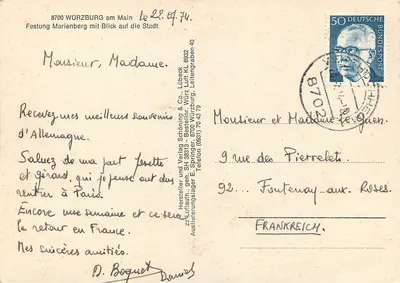 8700 WÜRZBURG am Main
Festung Marienberg mit Blick auf die Stadt
le 22.
74
Monsieur, Madame.
Recevez mes meilleurs souvenirs
d'Allemagne.
Saluez de ma part
et gérard, qui je pense ont du
rentrer à Paris
Encore une semaine et ce sera
le retour en France.
Mes sincères amitiés.
D. Boquet
Daniel
Hersteller und Verlag Schöning & Co., Lübeck
Luftaufn. gen. SH 38/13 - Bestellnr. Würz Luft KL 6602
Auslieferungslager E. Springer, 8700 Würzburg, Leitengraben 40
Telefon (0931) 70 43 79
50 DEUTSCHE BUNDESPOST
8702
Monsieur et Madame
9 rue des Pierrelet.
92... Fontenay-aux-Roses.
FRANKREICH.